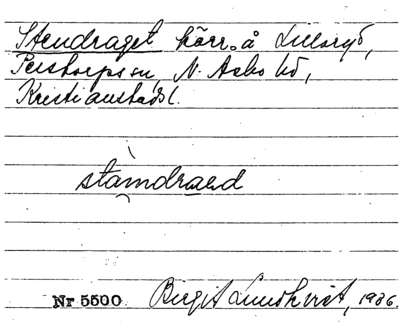 Stendraget kärr å Lillaryd,
Perstorps sn, N. Åsbo hd,
Kristianstads l.
stàmdraed
Nr 5500 Birgit Lundkvist, 1936.